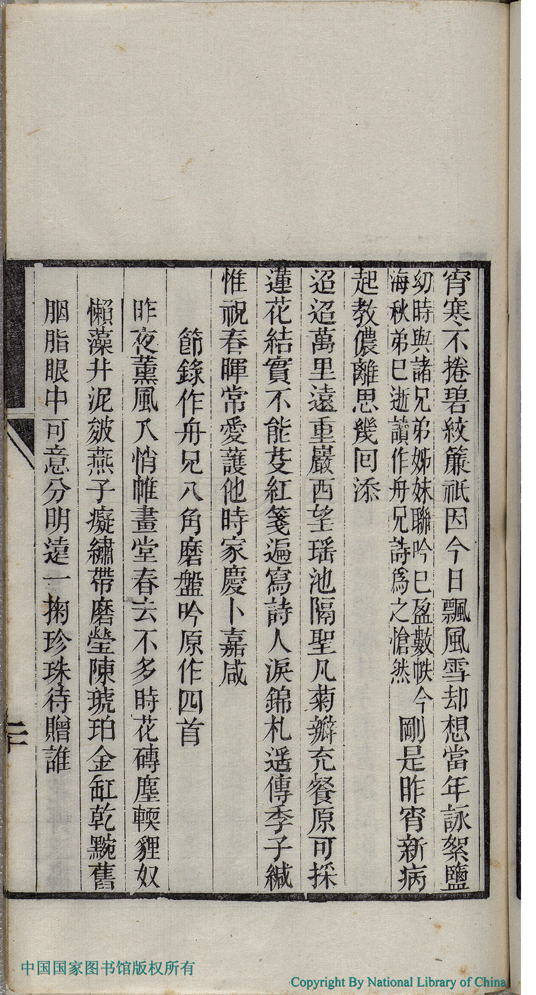 宵寒不捲碧紋簾祇因今日飄風雪却想當年詠絮鹽
幼時與諸兄弟姊妹聯吟已盈數帙今
海秋弟已逝讀作舟兄詩爲之愴然
剛是昨宵新病
起教儂離思幾回添
迢迢萬里遠重巖西望瑤池隔聖凡菊瓣充餐原可採
蓮花結實不能芟紅箋遍寫詩人淚錦札遥傳季子緘
惟祝春暉常愛護他時家慶卜嘉咸
節錄作舟兄八角磨盤吟原作四首
昨夜薰風入悄帷畫堂春去不多時花磚塵輭貍奴
懶藻井泥皴燕子癡繡帶磨瑩陳琥珀金缸乾黦舊
胭脂眼中可意分明遠一掬珍珠待贈誰
二
中国国家图书馆版权所有
Copyright By National Library of China